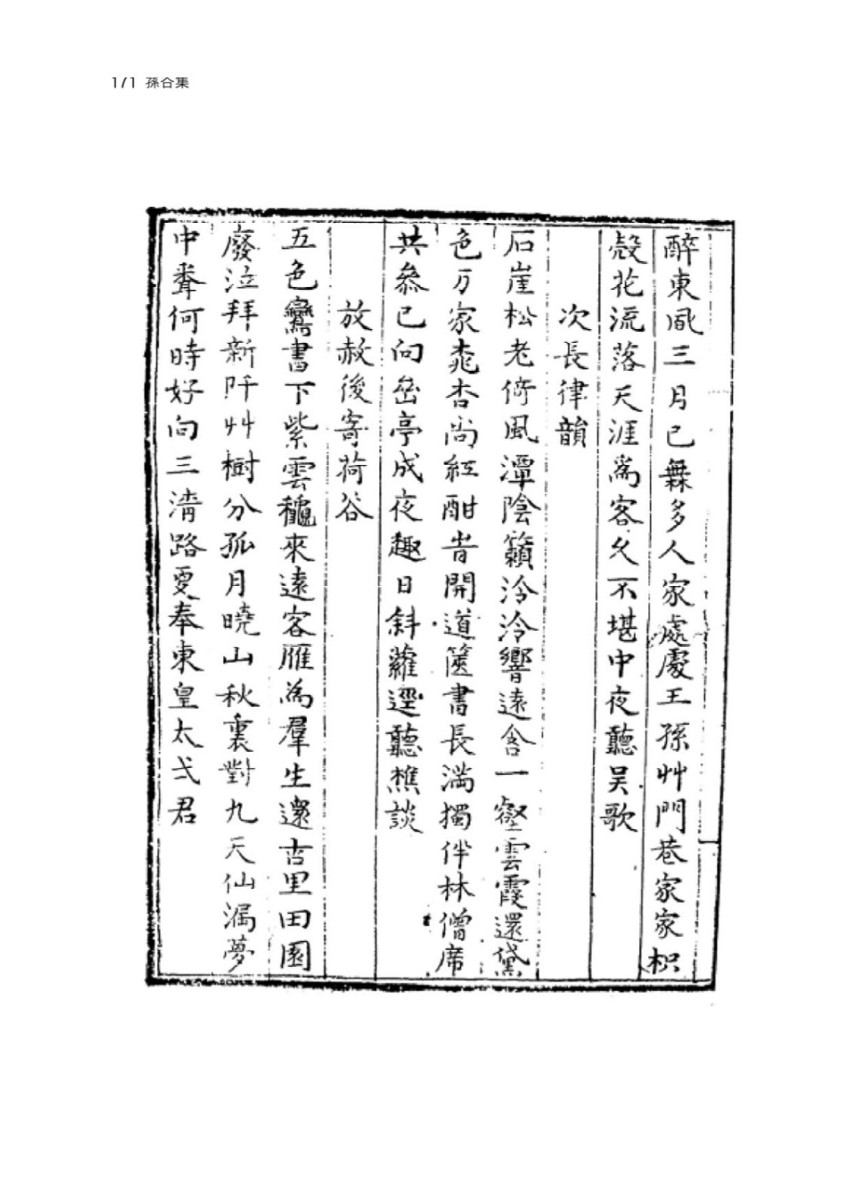 171 孫合集
醉東風三月已無多人家處處王孫艸門巷家家枳
殼花流落天涯爲客久不堪中夜聽吳歌
次長律韻
石崖松老倚風潭陰籟泠泠響遠含一壑雲霞還黛
色万家桃杏尚紅酣昔開道篋書長滿獨伴林僧席
共叅已向嵒亭成夜趣日斜蘿逕聽樵談
放赦後寄荷谷
五色鸞書下紫雲龝來遠客雁爲羣生還古里田園
廢泣拜新阡艸樹分孤月曉山秋裏對九天仙漏夢
中聋何時好向三清路更奉東皇太弌君